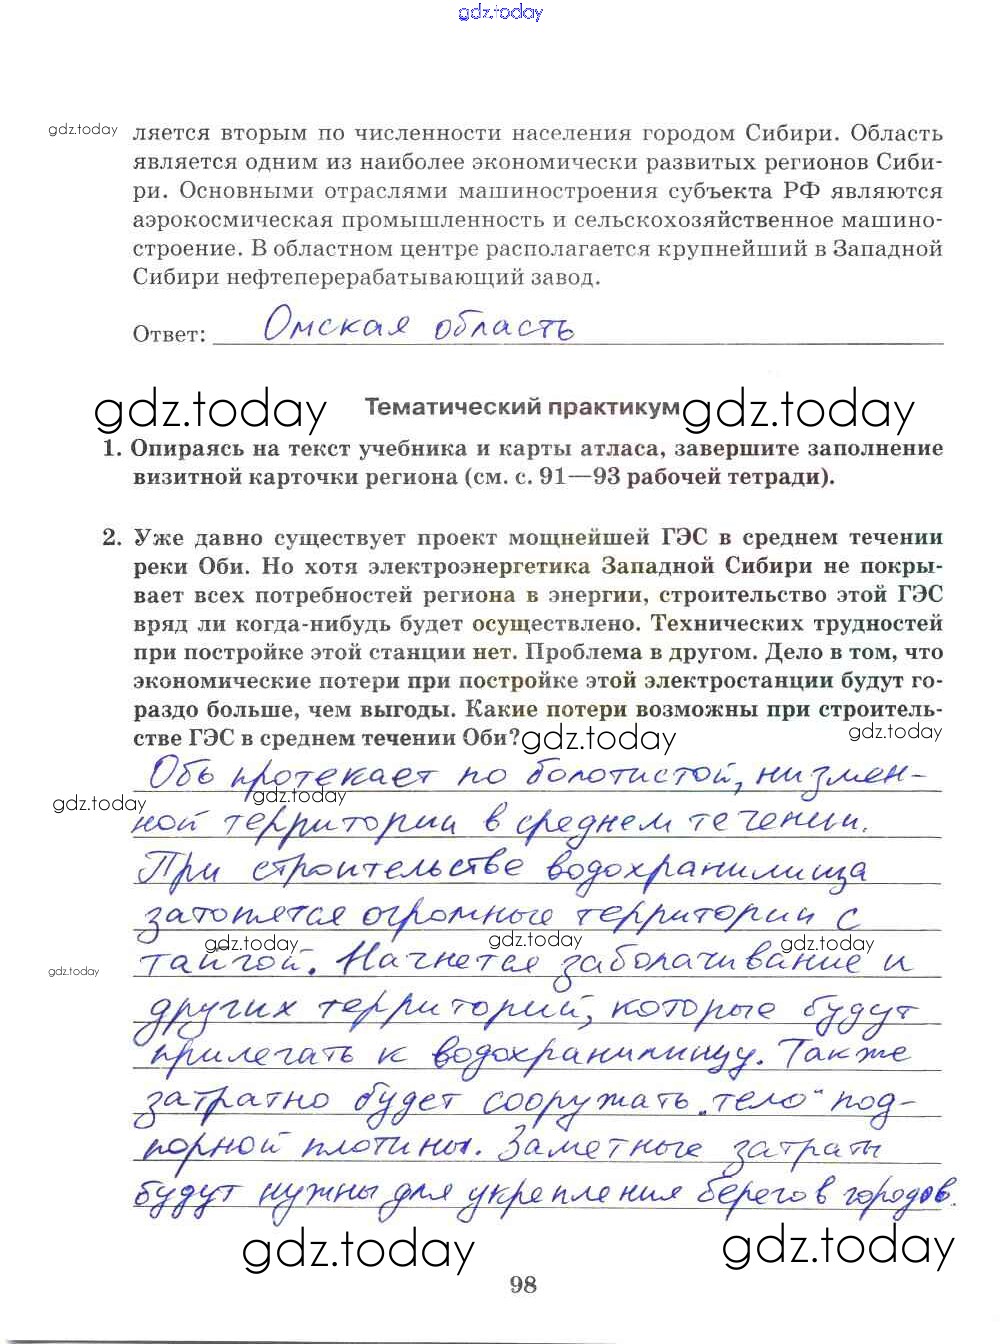 gdz.today
gdz.today
ляется вторым по численности населения городом Сибири. Область
является одним из наиболее экономически развитых регионов Сиби-
ри. Основными отраслями машиностроения субъекта РФ являются
аэрокосмическая промышленность и сельскохозяйственное машино-
строение. В областном центре располагается крупнейший в Западной
Сибири нефтеперерабатывающий завод.
Ответ: Омская область
gdz.today Тематический практикум gdz.today
1. Опираясь на текст учебника и карты атласа, завершите заполнение
визитной карточки региона (см. с. 91—93 рабочей тетради).
2. Уже давно существует проект мощнейшей ГЭС в среднем течении
реки Оби. Но хотя электроэнергетика Западной Сибири не покры-
вает всех потребностей региона в энергии, строительство этой ГЭС
вряд ли когда-нибудь будет осуществлено. Технических трудностей
при постройке этой станции нет. Проблема в другом. Дело в том, что
экономические потери при постройке этой электростанции будут го-
раздо больше, чем выгоды. Какие потери возможны при строитель-
стве ГЭС в среднем течении Оби? gdz.today gdz.today
Обь протекает по болотистой, низмен-
gdz.today gdz.today
ной территории в среднем течении.
При строительстве водохранилища
затопятся огромные территории с
gdz.today gdz.today gdz.today
тайгой. Начнется заболачивание и
gdz.today
других территорий, которые будут
прилегать к водохранилищу. Также
затратно будет сооружать „тело" под-
порной плотины. Заметные затраты
будут нужны для укрепления берегов городов.
gdz.today gdz.today
98